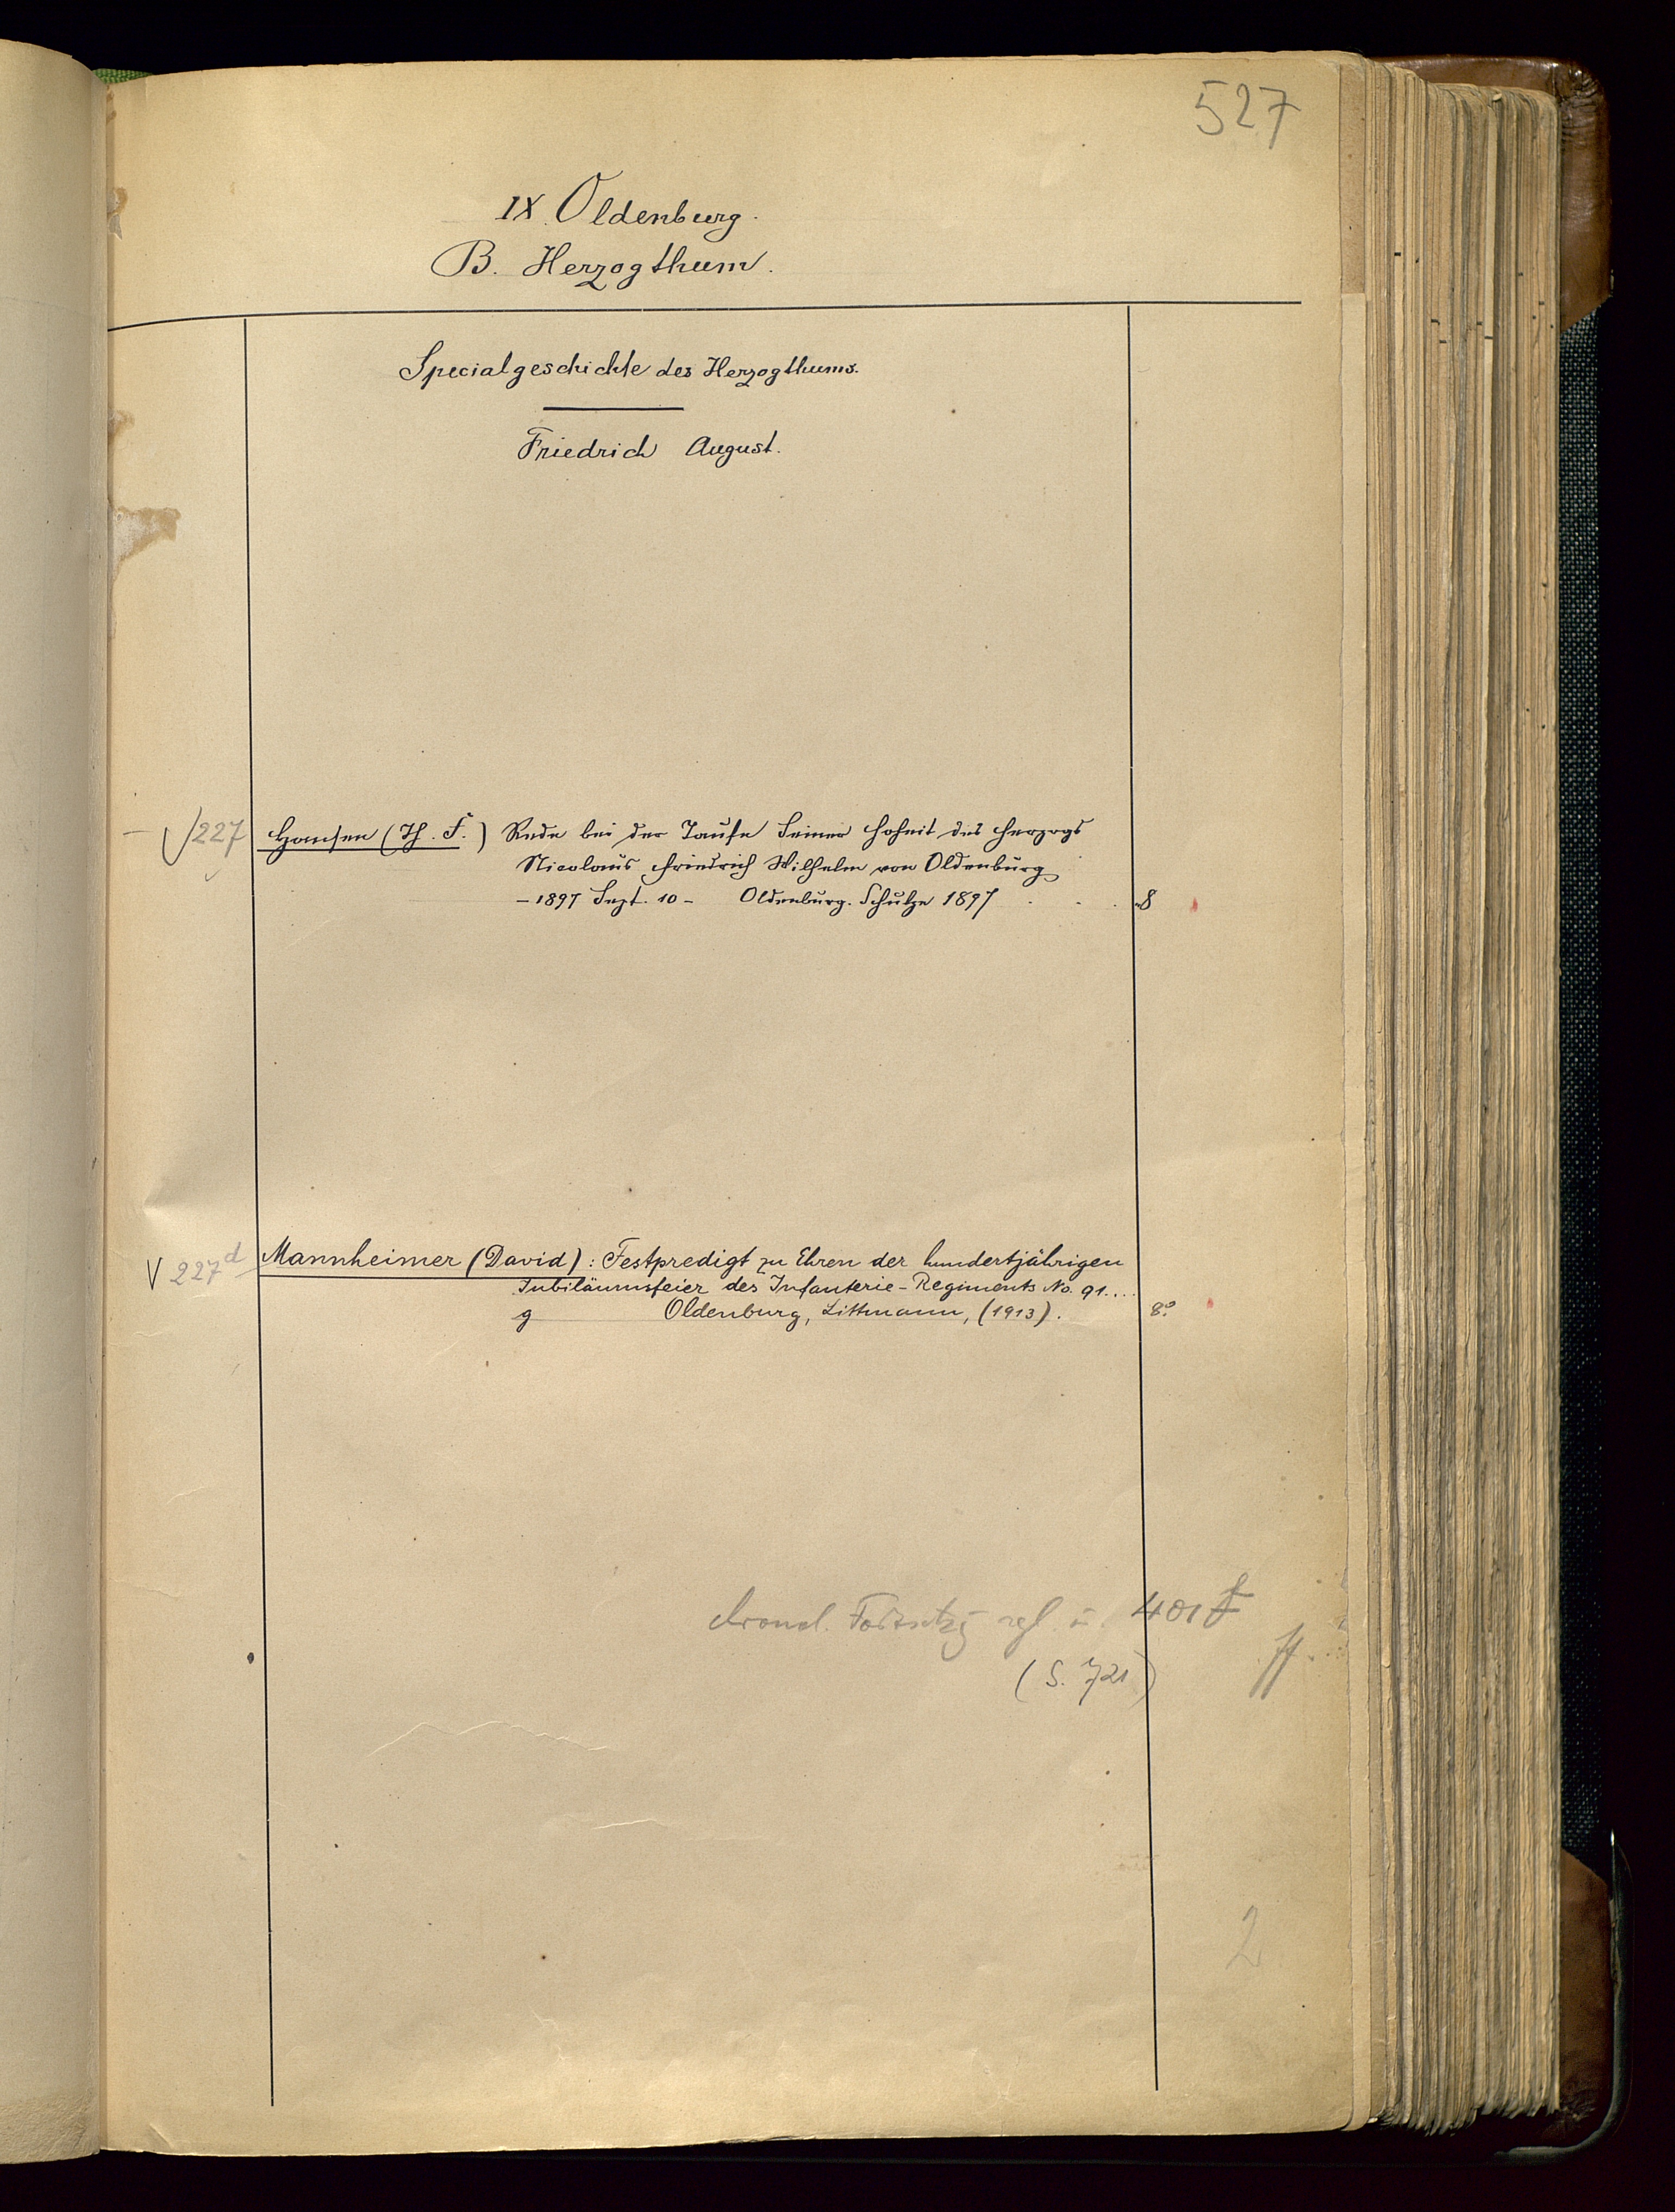 527
IX. Oldenburg.
B. Herzogthum.
Specialgeschichte des Herzogthums.
Friedrich August.
227 Hansen (Th. F.) Rede bei der Taufe Seiner Hoheit des Herzogs
Nicolaus Friedrich Wilhelm von Oldenburg
- 1897 Sept. 10 - Oldenburg. Schulze 1897 . . . 8
V 227d Mannheimer (David): Festpredigt zu Ehren der hundertjährigen
Jubiläumsfeier des Infanterie-Regiments No. 91....
g Oldenburg, Littmann, (1913). 8°.
401 f
ff.
(S. 721)
2